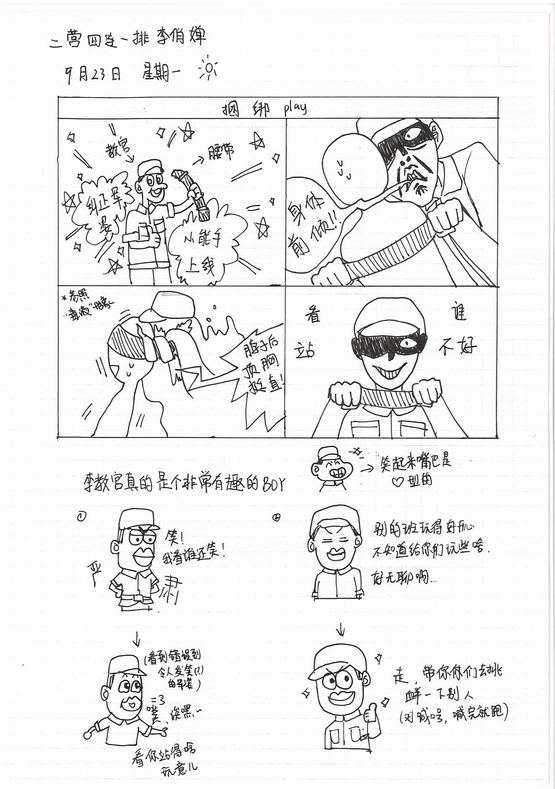 二营四连一排 李伯婵
9月23日 星期一
捆绑 play
教官
腰带
纠正军姿
小能手上线
身体前倾!!
*参照
脖子后
顶胸
挺直!
看谁
站不好
李教官真的是个非常有趣的BOY
笑起来嘴巴是
♡型的
①
笑!
我看谁还笑!
严肃
(看到错误到
令人发笑(?)
的军姿)
=3
噗,嘿嘿~
看你站得啥
玩意儿
②
别的班玩得好开心
不知道给你们玩些啥.
好无聊啊..
走,带你们去挑
衅一下别人
(对喊嗓,喊完就跑)